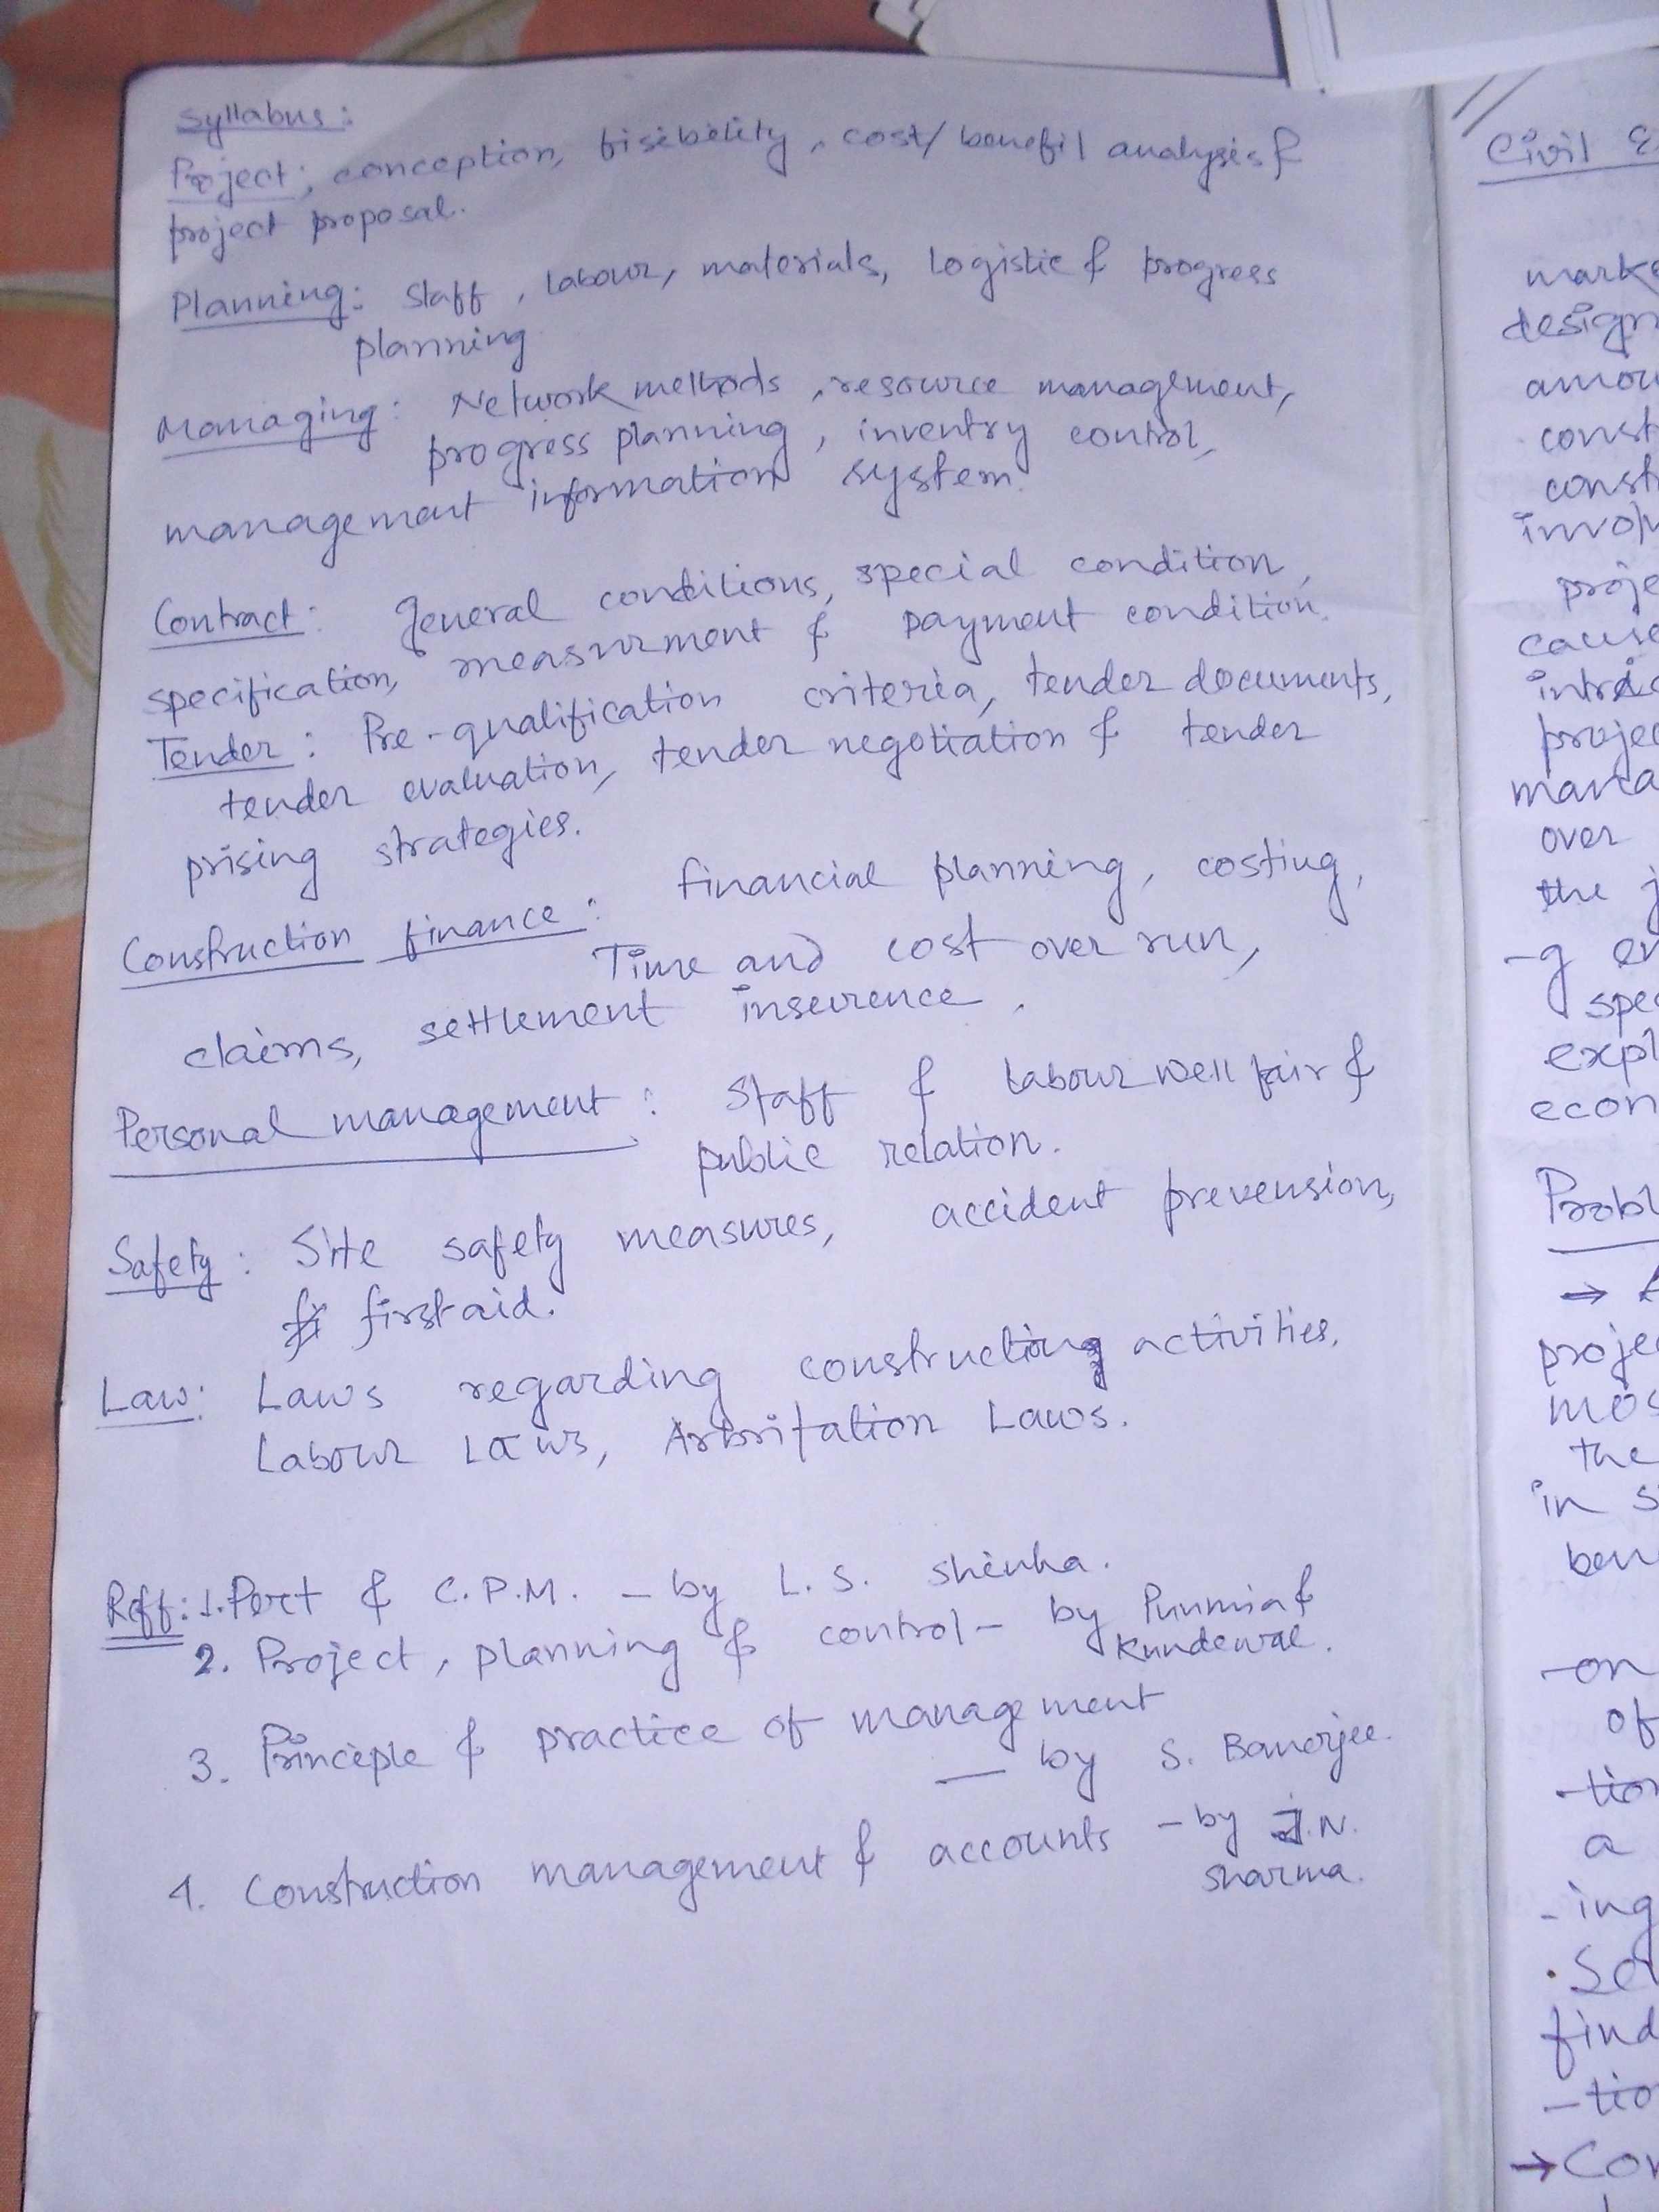 Syllabus:
Project; conception, fisebility, cost/benefit analysis &
project proposal.
Planning: staff, labour, materials, Logistic & progress
planning
Managing: Network methods, resource management,
progress planning, inventry control,
management information system.
Contract: General conditions, special condition,
specification, measurment & payment condition.
Tender: Pre-qualification criteria, tender documents,
tender evaluation, tender negotiation & tender
prising strategies.
Construction finance: financial planning, costing,
Time and cost over run,
claims, settlement insurence.
Personal management: Staff & labour wellfair &
public relation.
Safety: Site safety measures, accident prevension,
first aid.
Law: Laws regarding constructing activities,
Labour Laws, Arbritation Laws.
Reff: 1. Pert & C.P.M. - by L. S. Shinha.
2. Project, planning & control - by Punmia &
Kundewal.
3. Principle & practice of management
— by S. Banerjee.
4. Construction management & accounts - by J.N.
Sharma.
Civil
design
over
the
-g
→
the
in
-on
of
-tion
a
-ing
find
→